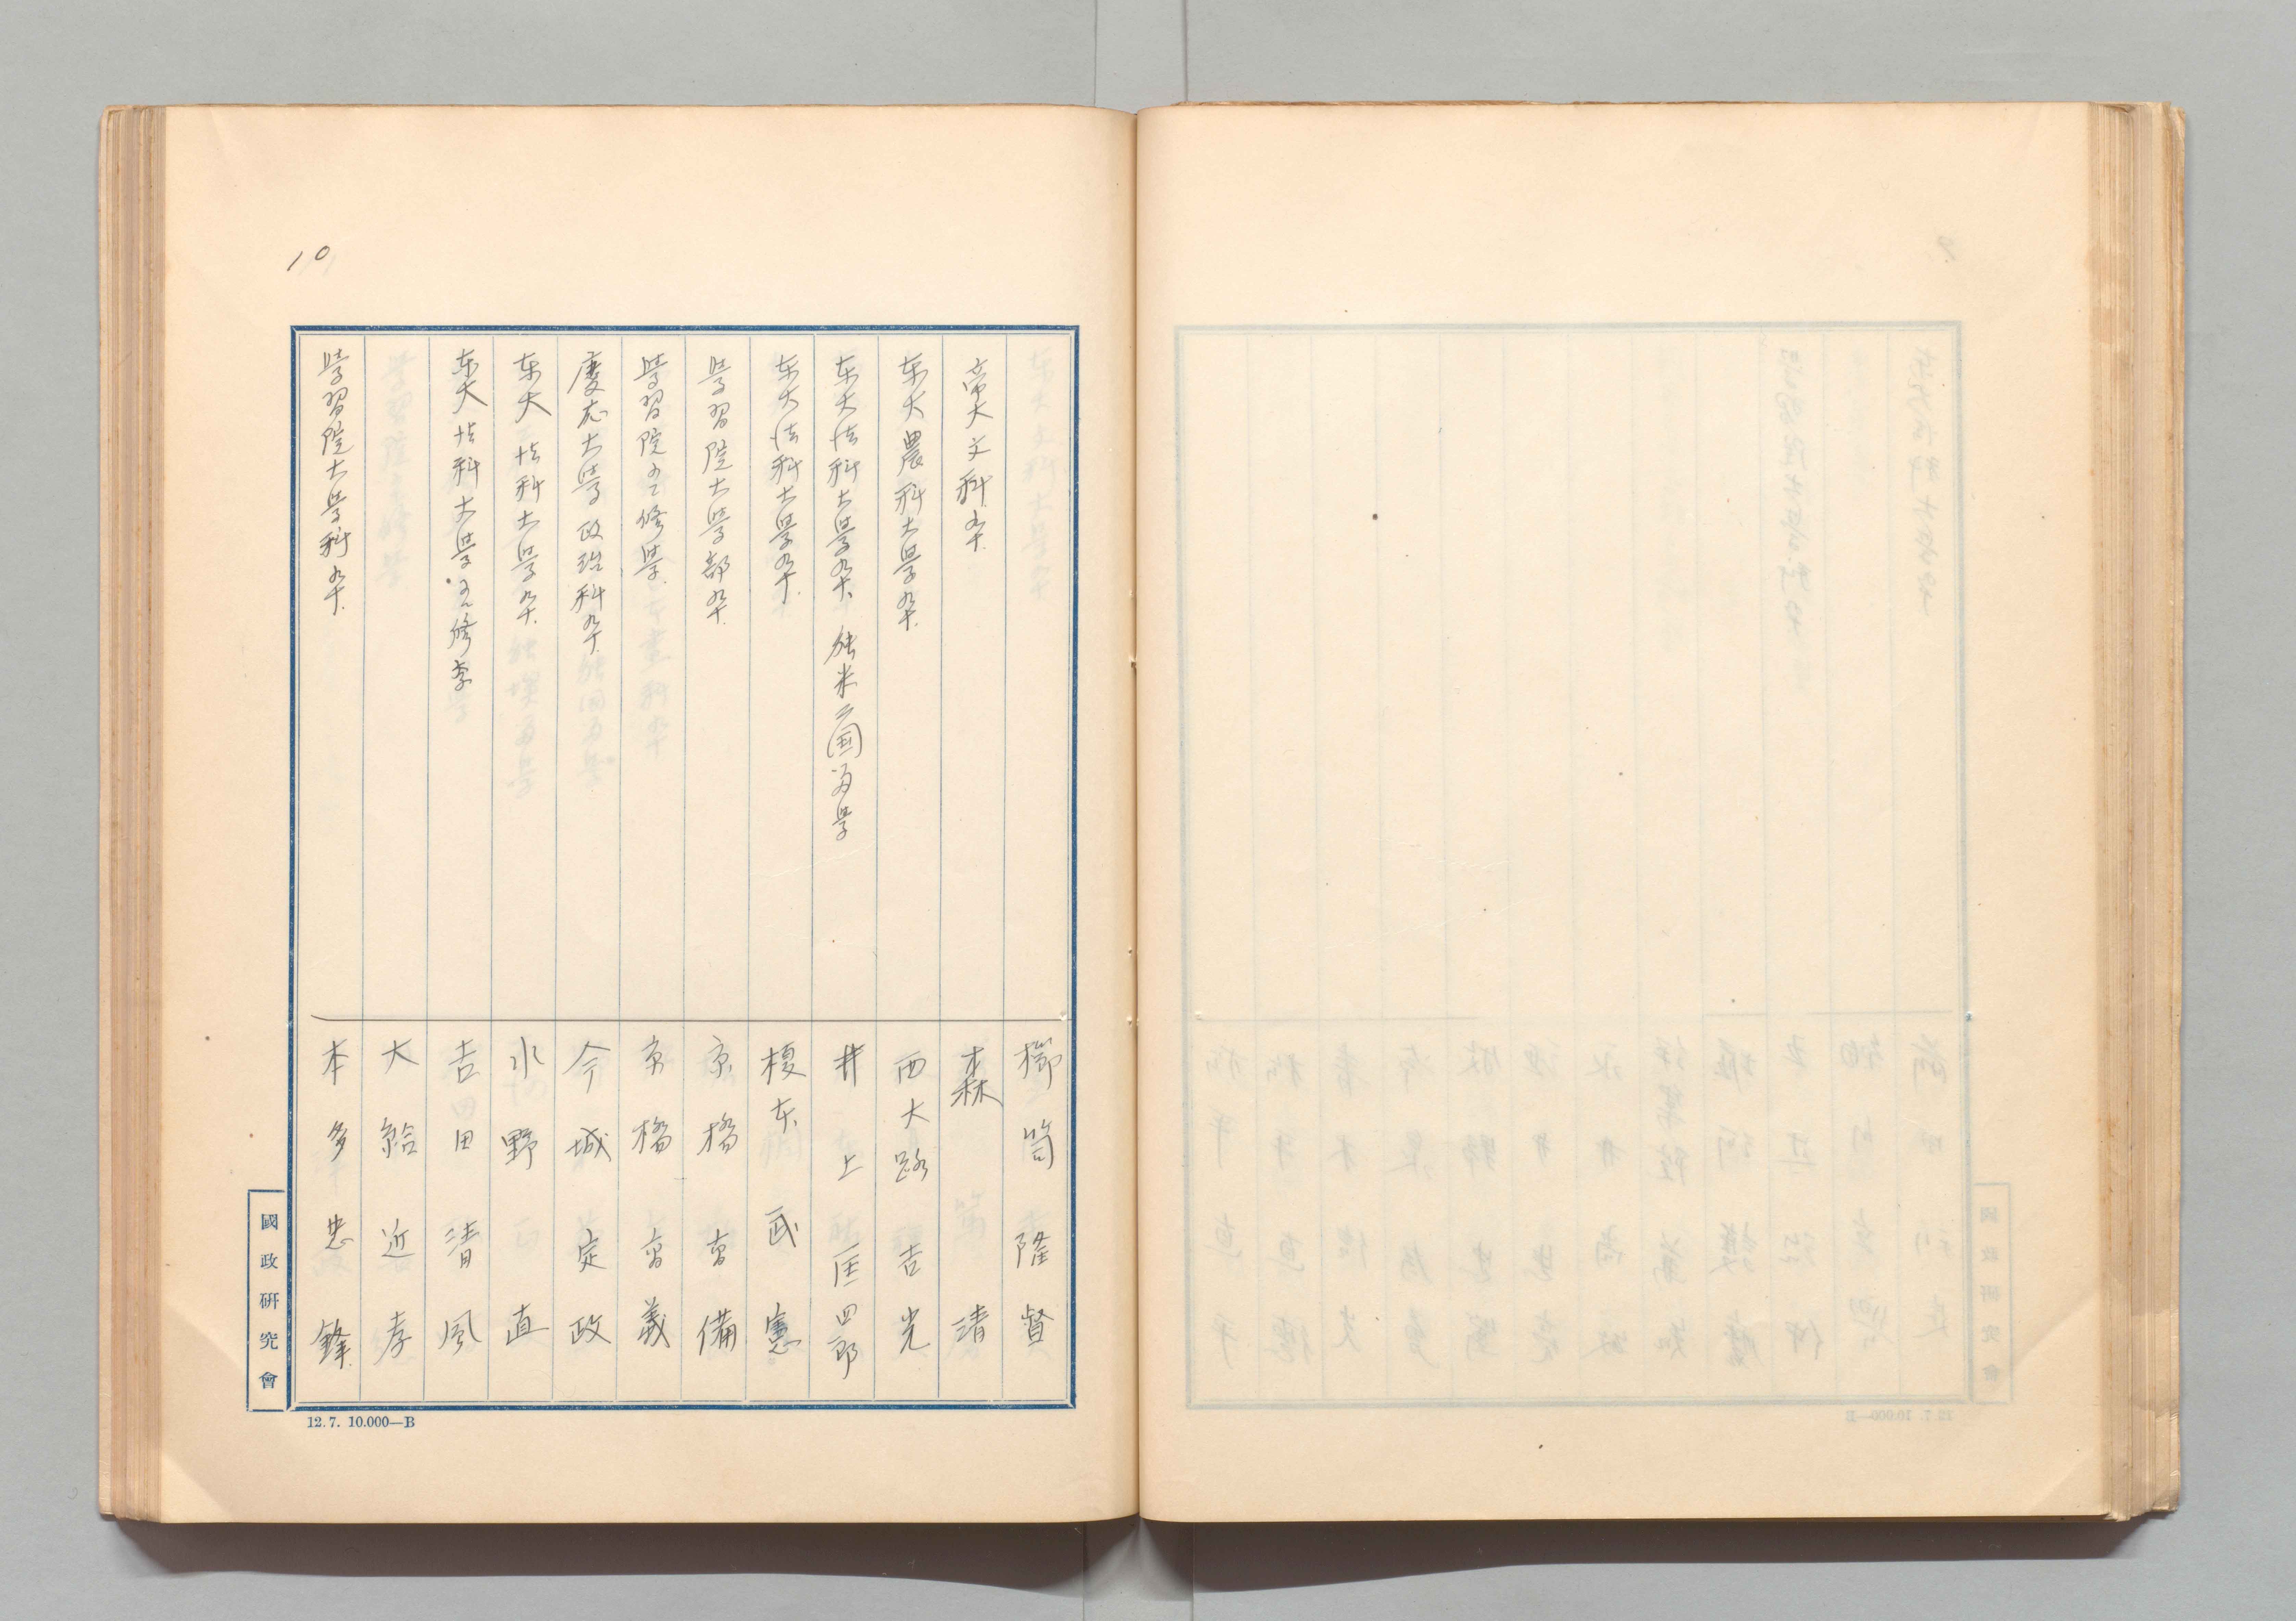 10
櫛笥隆督
帝大文科卒. 森清
東大農科大学卒. 西大路吉光
東大法科大学卒、独米二国留学 井上匡四郎
東大法科大学卒. 榎本武憲
学習院大学部卒. 京極高備
学習院ニテ修学. 京極高義
慶応大学政治科卒. 今城定政
東大法科大学卒. 水野直
東大法科大学ニテ修学 吉田清風
大給近孝
学習院大学科卒. 本多忠鋒
國政研究會
12.7. 10.000—B